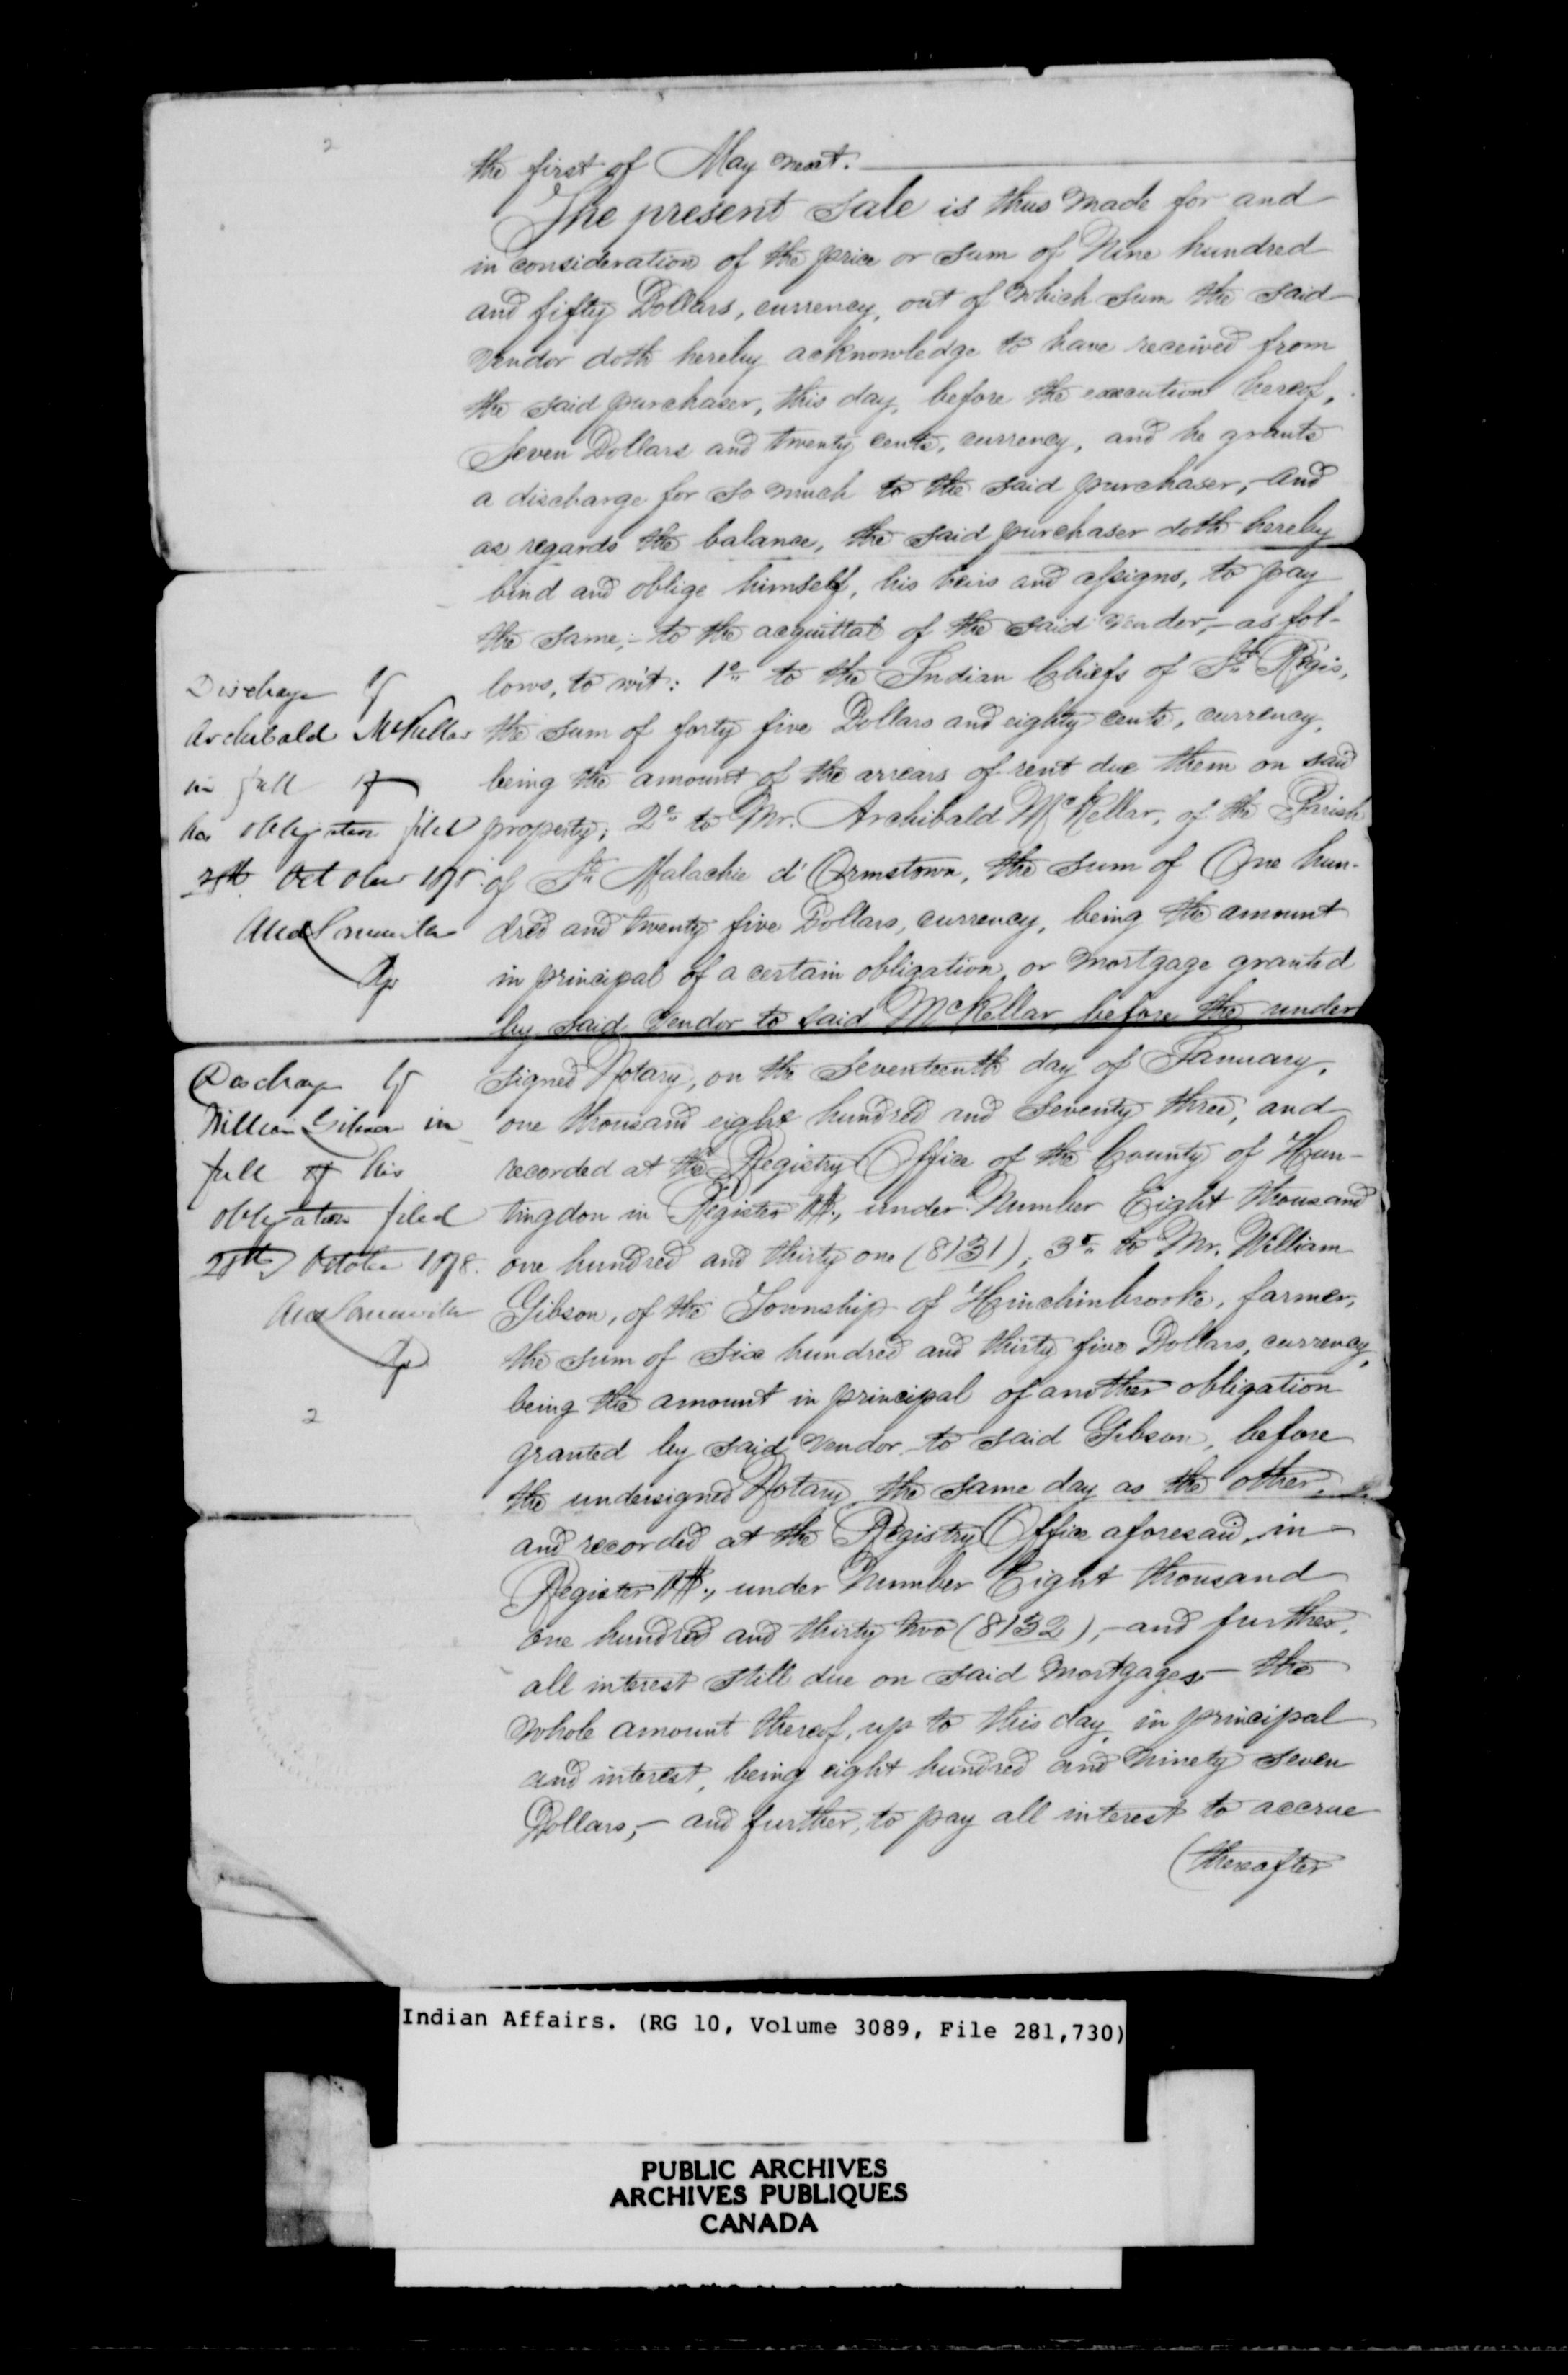 2
the first of May next.
The present sale is thus made for and
in consideration of the price or sum of Nine hundred
and fifty Dollars, currency, out of which sum the said
vendor doth hereby acknowledge to have received from
the said purchaser, this day, before the execution hereof,
Seven Dollars and twenty cents, currency, and he grants
a discharge for so much to the said purchaser,- and
as regards the balance, the said purchaser doth hereby
bind and oblige himself, his heirs and assigns, to pay
the same;- to the acquittal of the said vendor,- as fol-
lows, to wit: 1o to the Indian Chiefs of St. Régis,
the sum of forty five Dollars and eighty cents, currency,
being the amount of the arrears of rent due them on said
property; 2o to Mr. Archibald McKellar, of the Parish
of St. Malachie d'Ormstown, the sum of One hun-
dred and twenty five Dollars, currency, being the amount
in principal of a certain obligation or mortgage granted
by said vendor to said McKellar, before the under
signed Notary, on the Seventeenth day of January,
one thousand eight hundred and seventy three, and
recorded at the Registry Office of the County of Hun-
tingdon in Register under Number Eight thousand
one hundred and thirty one (8131); 3o to Mr. William
Gibson, of the Township of Hinchinbrooke, farmer,
the sum of six hundred and thirty five Dollars, currency,
being the amount in principal of another obligation
granted by said vendor to said Gibson, before
the undersigned Notary, the same day as the other,
and recorded at the Registry Office aforesaid, in
Register under Number Eight thousand
one hundred and thirty two (8132),- and further,
all interest still due on said mortgages,- the
whole amount thereof, up to this day, in principal
and interest, being eight hundred and ninety seven
Dollars,- and further, to pay all interest to accrue
(thereafter
Discharge of
Archibald McKellar
in full of
his obligation filed
October 1878
Discharge of
William Gibson in
full of his
obligation filed
October 1878.
2
Indian Affairs. (RG 10, Volume 3089, File 281,730)
PUBLIC ARCHIVES
ARCHIVES PUBLIQUES
CANADA